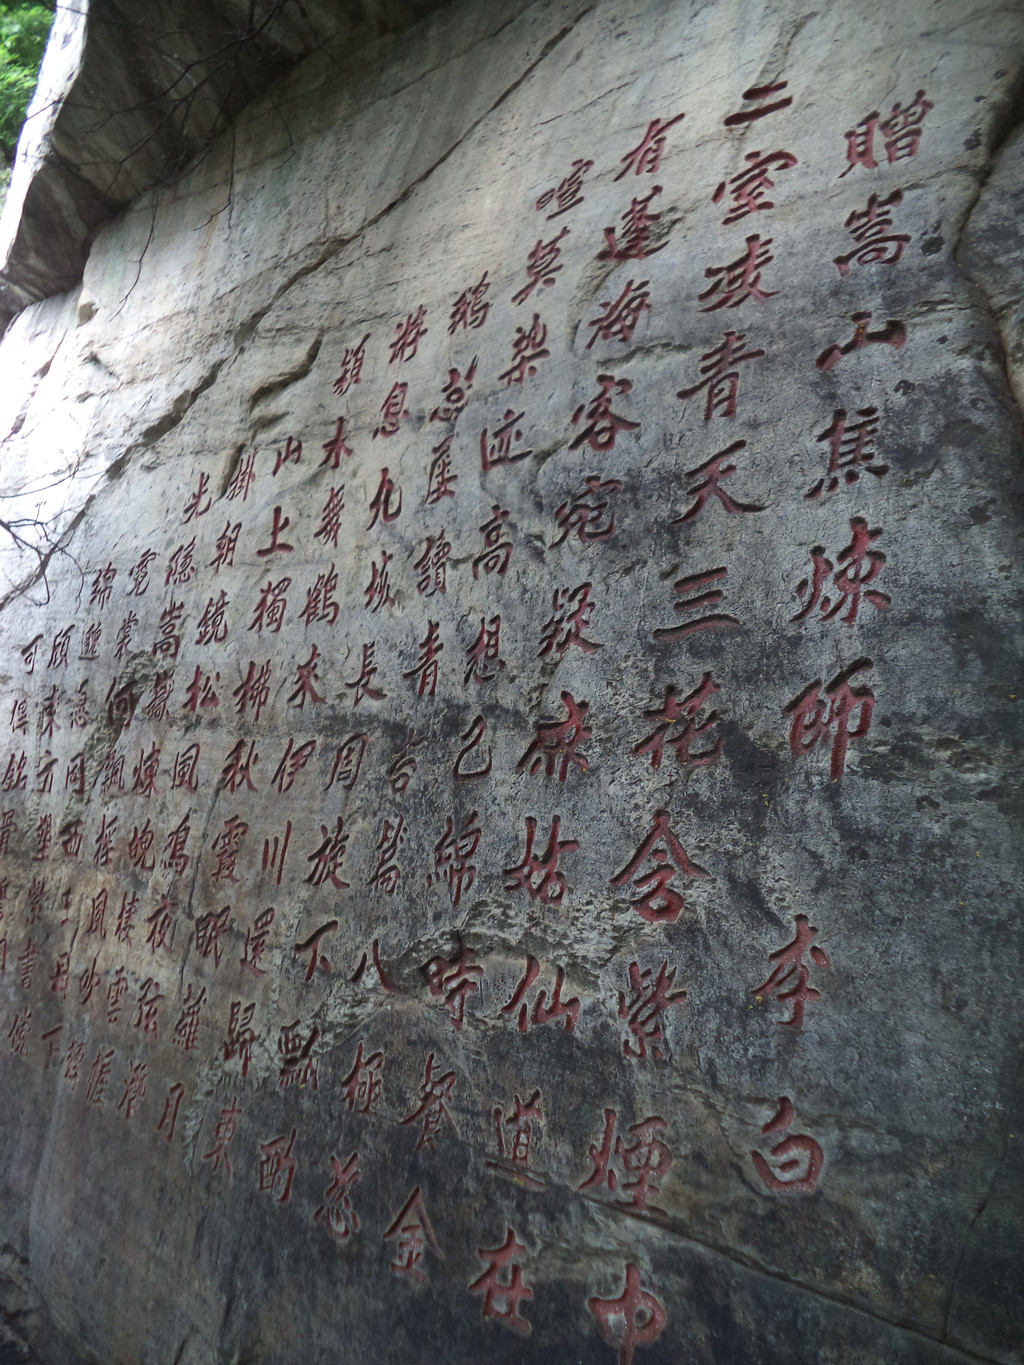 贈嵩山焦煉師 李白
二室凌青天三花含紫煙中
有蓬海客宛疑麻姑仙道在
喧莫染迹高想已綿時餐金
鵝蕊屢讀青苔篇八極恣
游息九垓長周旋下瓢酌
潁水舞鶴來伊川還歸東
山上獨拂秋霞眠蘿月
掛朝鏡松風鳴夜弦潛
光隱嵩嶽煉魄棲雲幄
霓裳何飄颻鳳吹轉
綿邈願同西王母下
顧東方朔紫書儻
可傳銘骨誓相